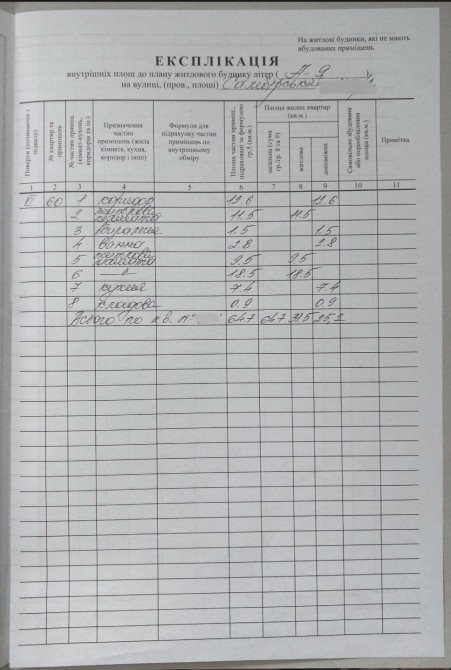 На житлові будинки, які не мають
вбудованих приміщень
ЕКСПЛІКАЦІЯ
внутрішніх площ до плану житлового будинку літер ( А-9 ),
на вулиці, (пров., площі)
Поверхи (починаючи з підвалу)
№ квартир та приміщень
№ частин приміщ. (кімнат-кухонь, коридорів та ін.)
Призначення частин приміщень (жила кімната, кухня, коридор і інші)
Формули для підрахунку частин приміщень по внутрішньому обміру
Площа частин приміщ., підрахована за формулою гр.5 (кв.м.)
Площа жилих квартир (кв.м.)
загальна (сума гр./гр. 8 за 9)
житлова
допоміжна
Самовільно збудована або переобладнана площа (кв.м.)
Примітка
1 2 3 4 5 6 7 8 9 10 11
VI 60 1 коридор 12.6 12.6
2 житлова кімната 11.5 11.5
3 вбиральня 1.5 1.5
4 ванна 2.8 2.8
5 житлова кімната 9.5 9.5
6 —"— 18.5 18.5
7 кухня 7.4 7.4
8 кладова 0.9 0.9
Всього по кв. 64.7 64.7 39.5 25.2